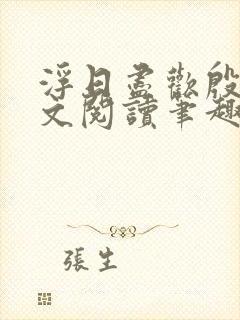 浮日盡歡殷
文閱讀筆趣
張生